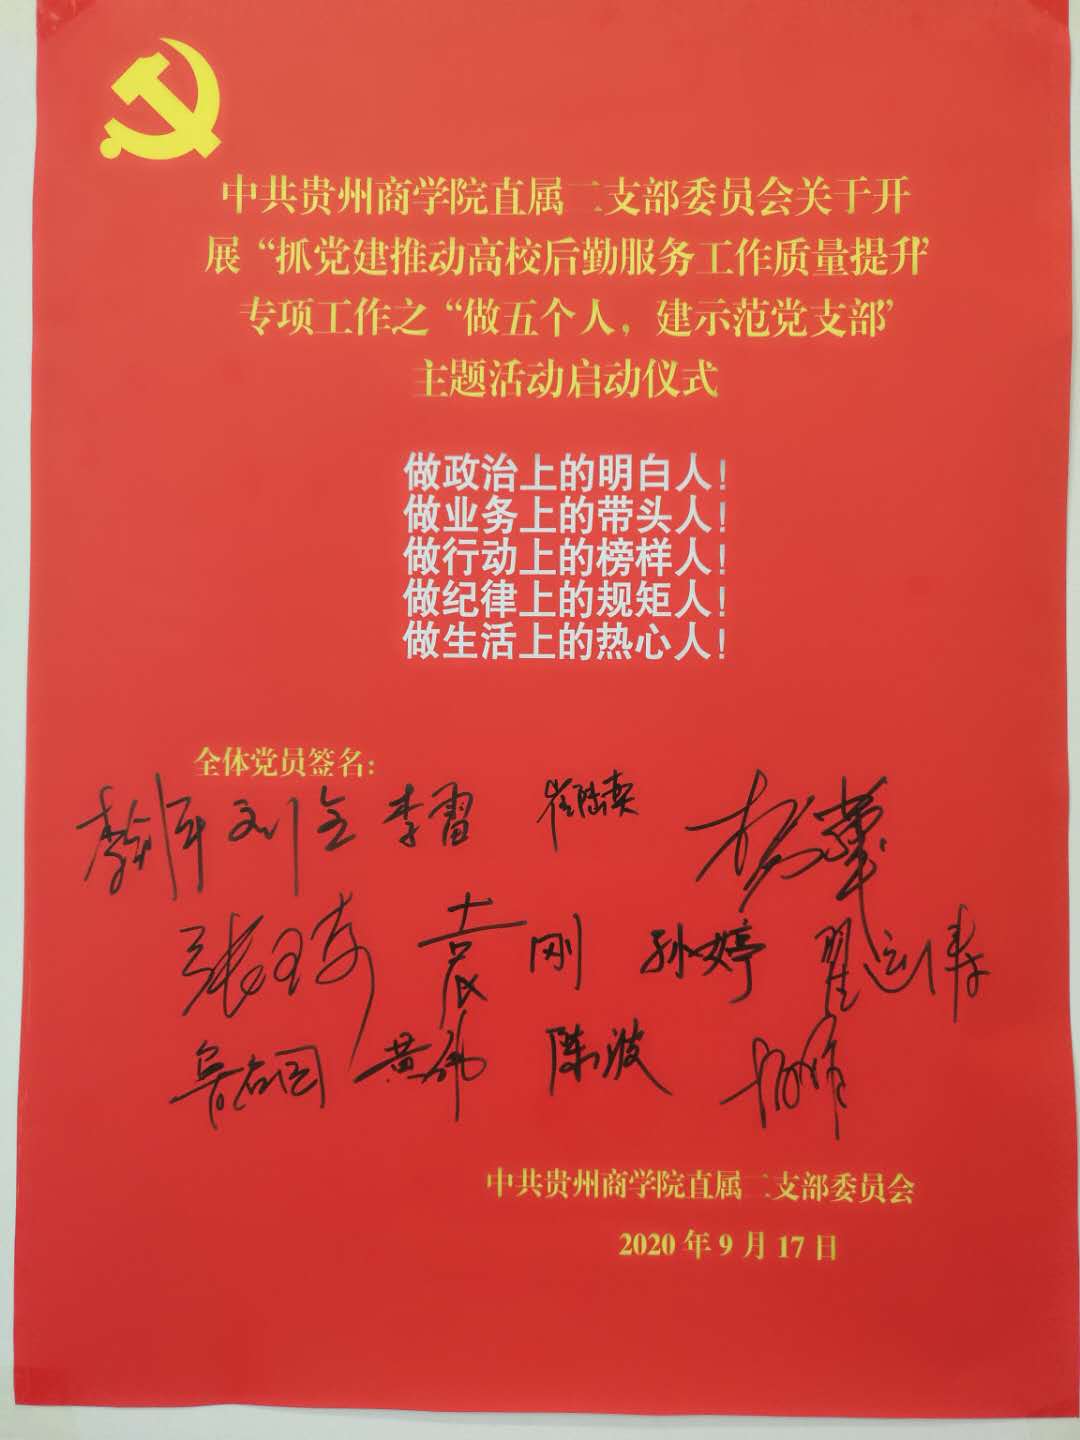 中共贵州商学院直属二支部委员会关于开
展“抓党建推动高校后勤服务工作质量提升”
专项工作之“做五个人，建示范党支部”
主题活动启动仪式
做政治上的明白人！
做业务上的带头人！
做行动上的榜样人！
做纪律上的规矩人！
做生活上的热心人！
全体党员签名：
刘全 李雷 崔陆英
袁刚 孙婷 翟运伟
黄伟 陈波
中共贵州商学院直属二支部委员会
2020年9月17日